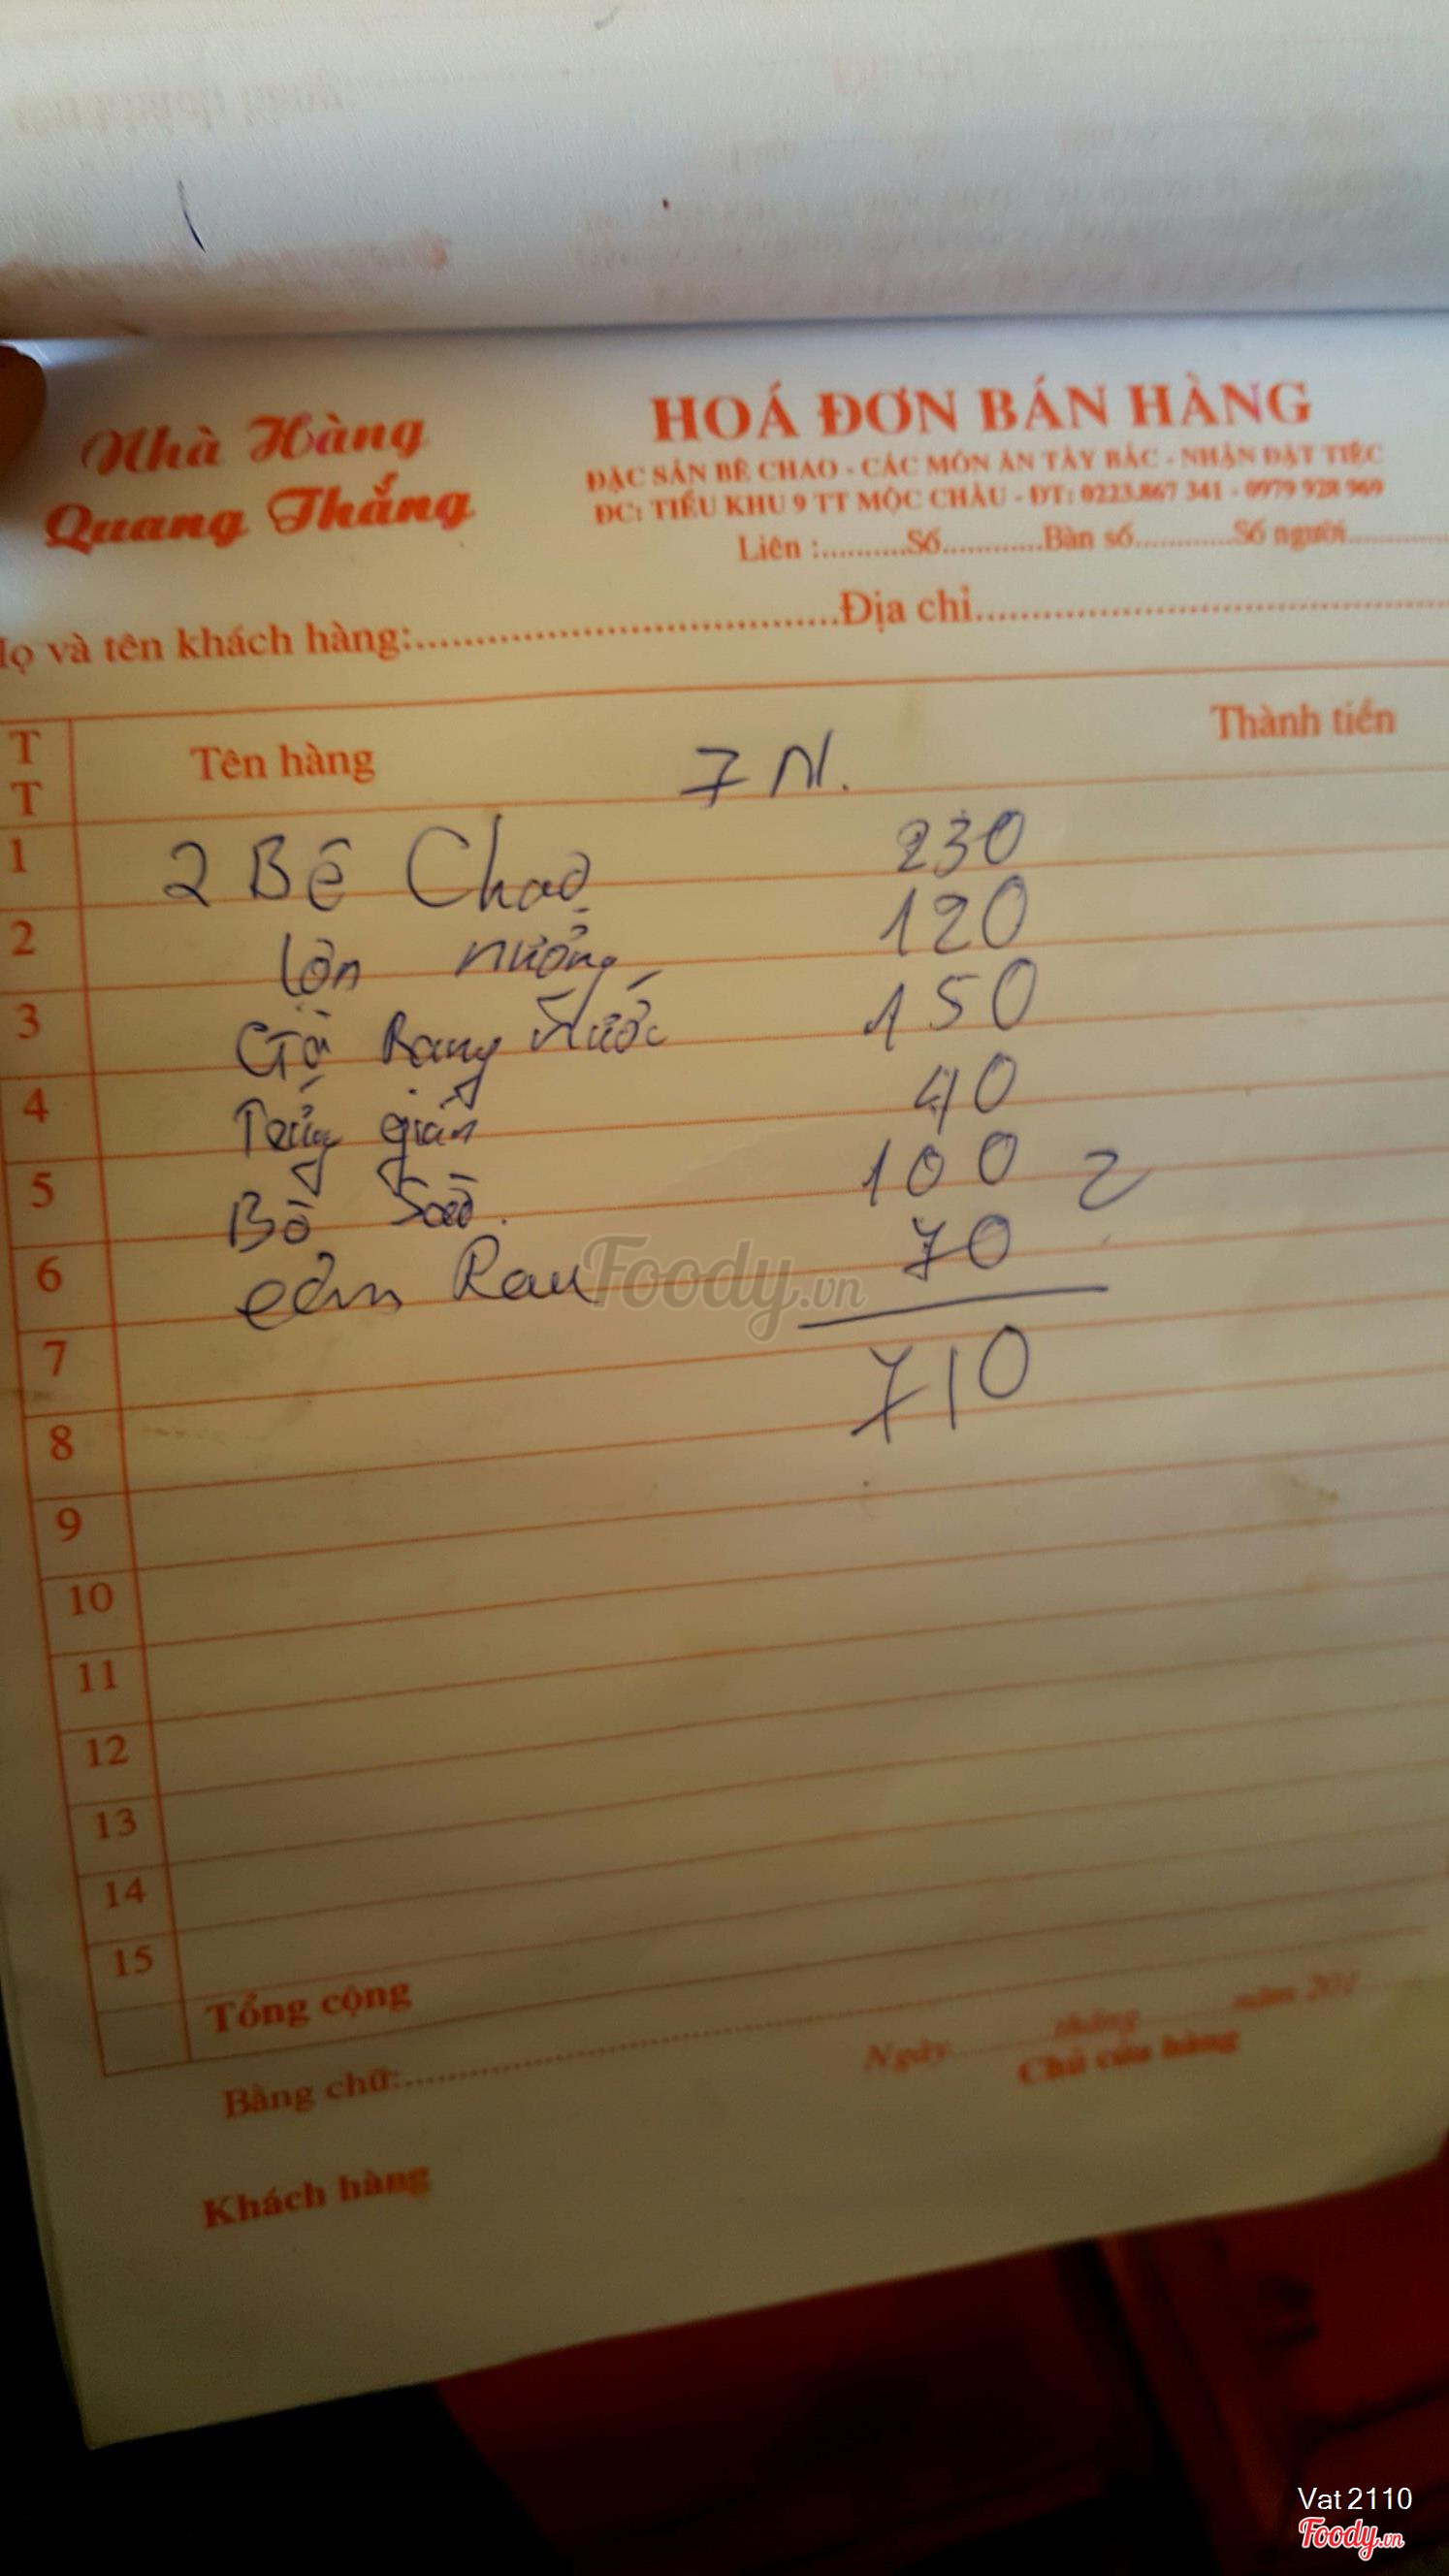 Nhà Hàng
Quang Thắng
HOÁ ĐƠN BÁN HÀNG
ĐẶC SẢN BÊ CHAO - CÁC MÓN ĂN TÂY BẮC - NHẬN ĐẶT TIỆC
ĐC: TIỂU KHU 9 TT MỘC CHÂU - ĐT: 0223.867 341 - 0979 928 969
Liên :..........Số............Bàn số............Số người............
Họ và tên khách hàng:....................................Địa chỉ....................................
TT Tên hàng 7 N. Thành tiền
1 2 Bê Chao 230
2 lợn nướng 120
3 Gà Rang 150
4 Trứng rán 40
5 Bò Xào 100 2
6 cơm Rau 70
7 710
8
9
10
11
12
13
14
15
Tổng cộng
Bằng chữ:....................................
Ngày............tháng............năm 201
Chủ cửa hàng
Khách hàng
Foody.vn
Vat2110
Foody.vn